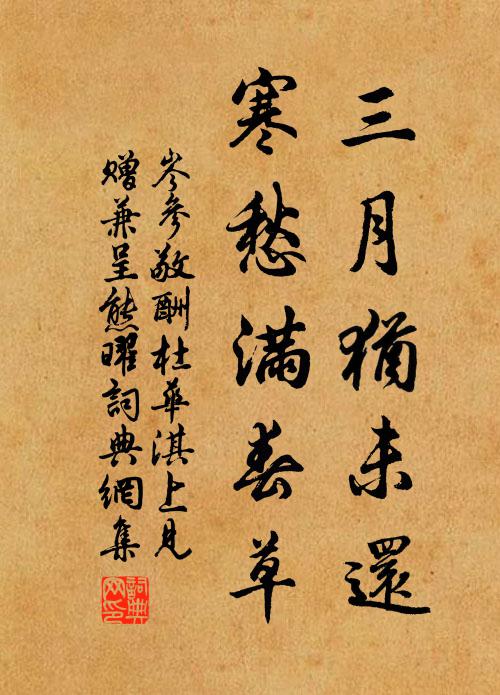 三月猶未還
寒愁滿春草
岑參敬酬杜華淇上見
贈兼呈熊曜詞典網集
詞典
网印